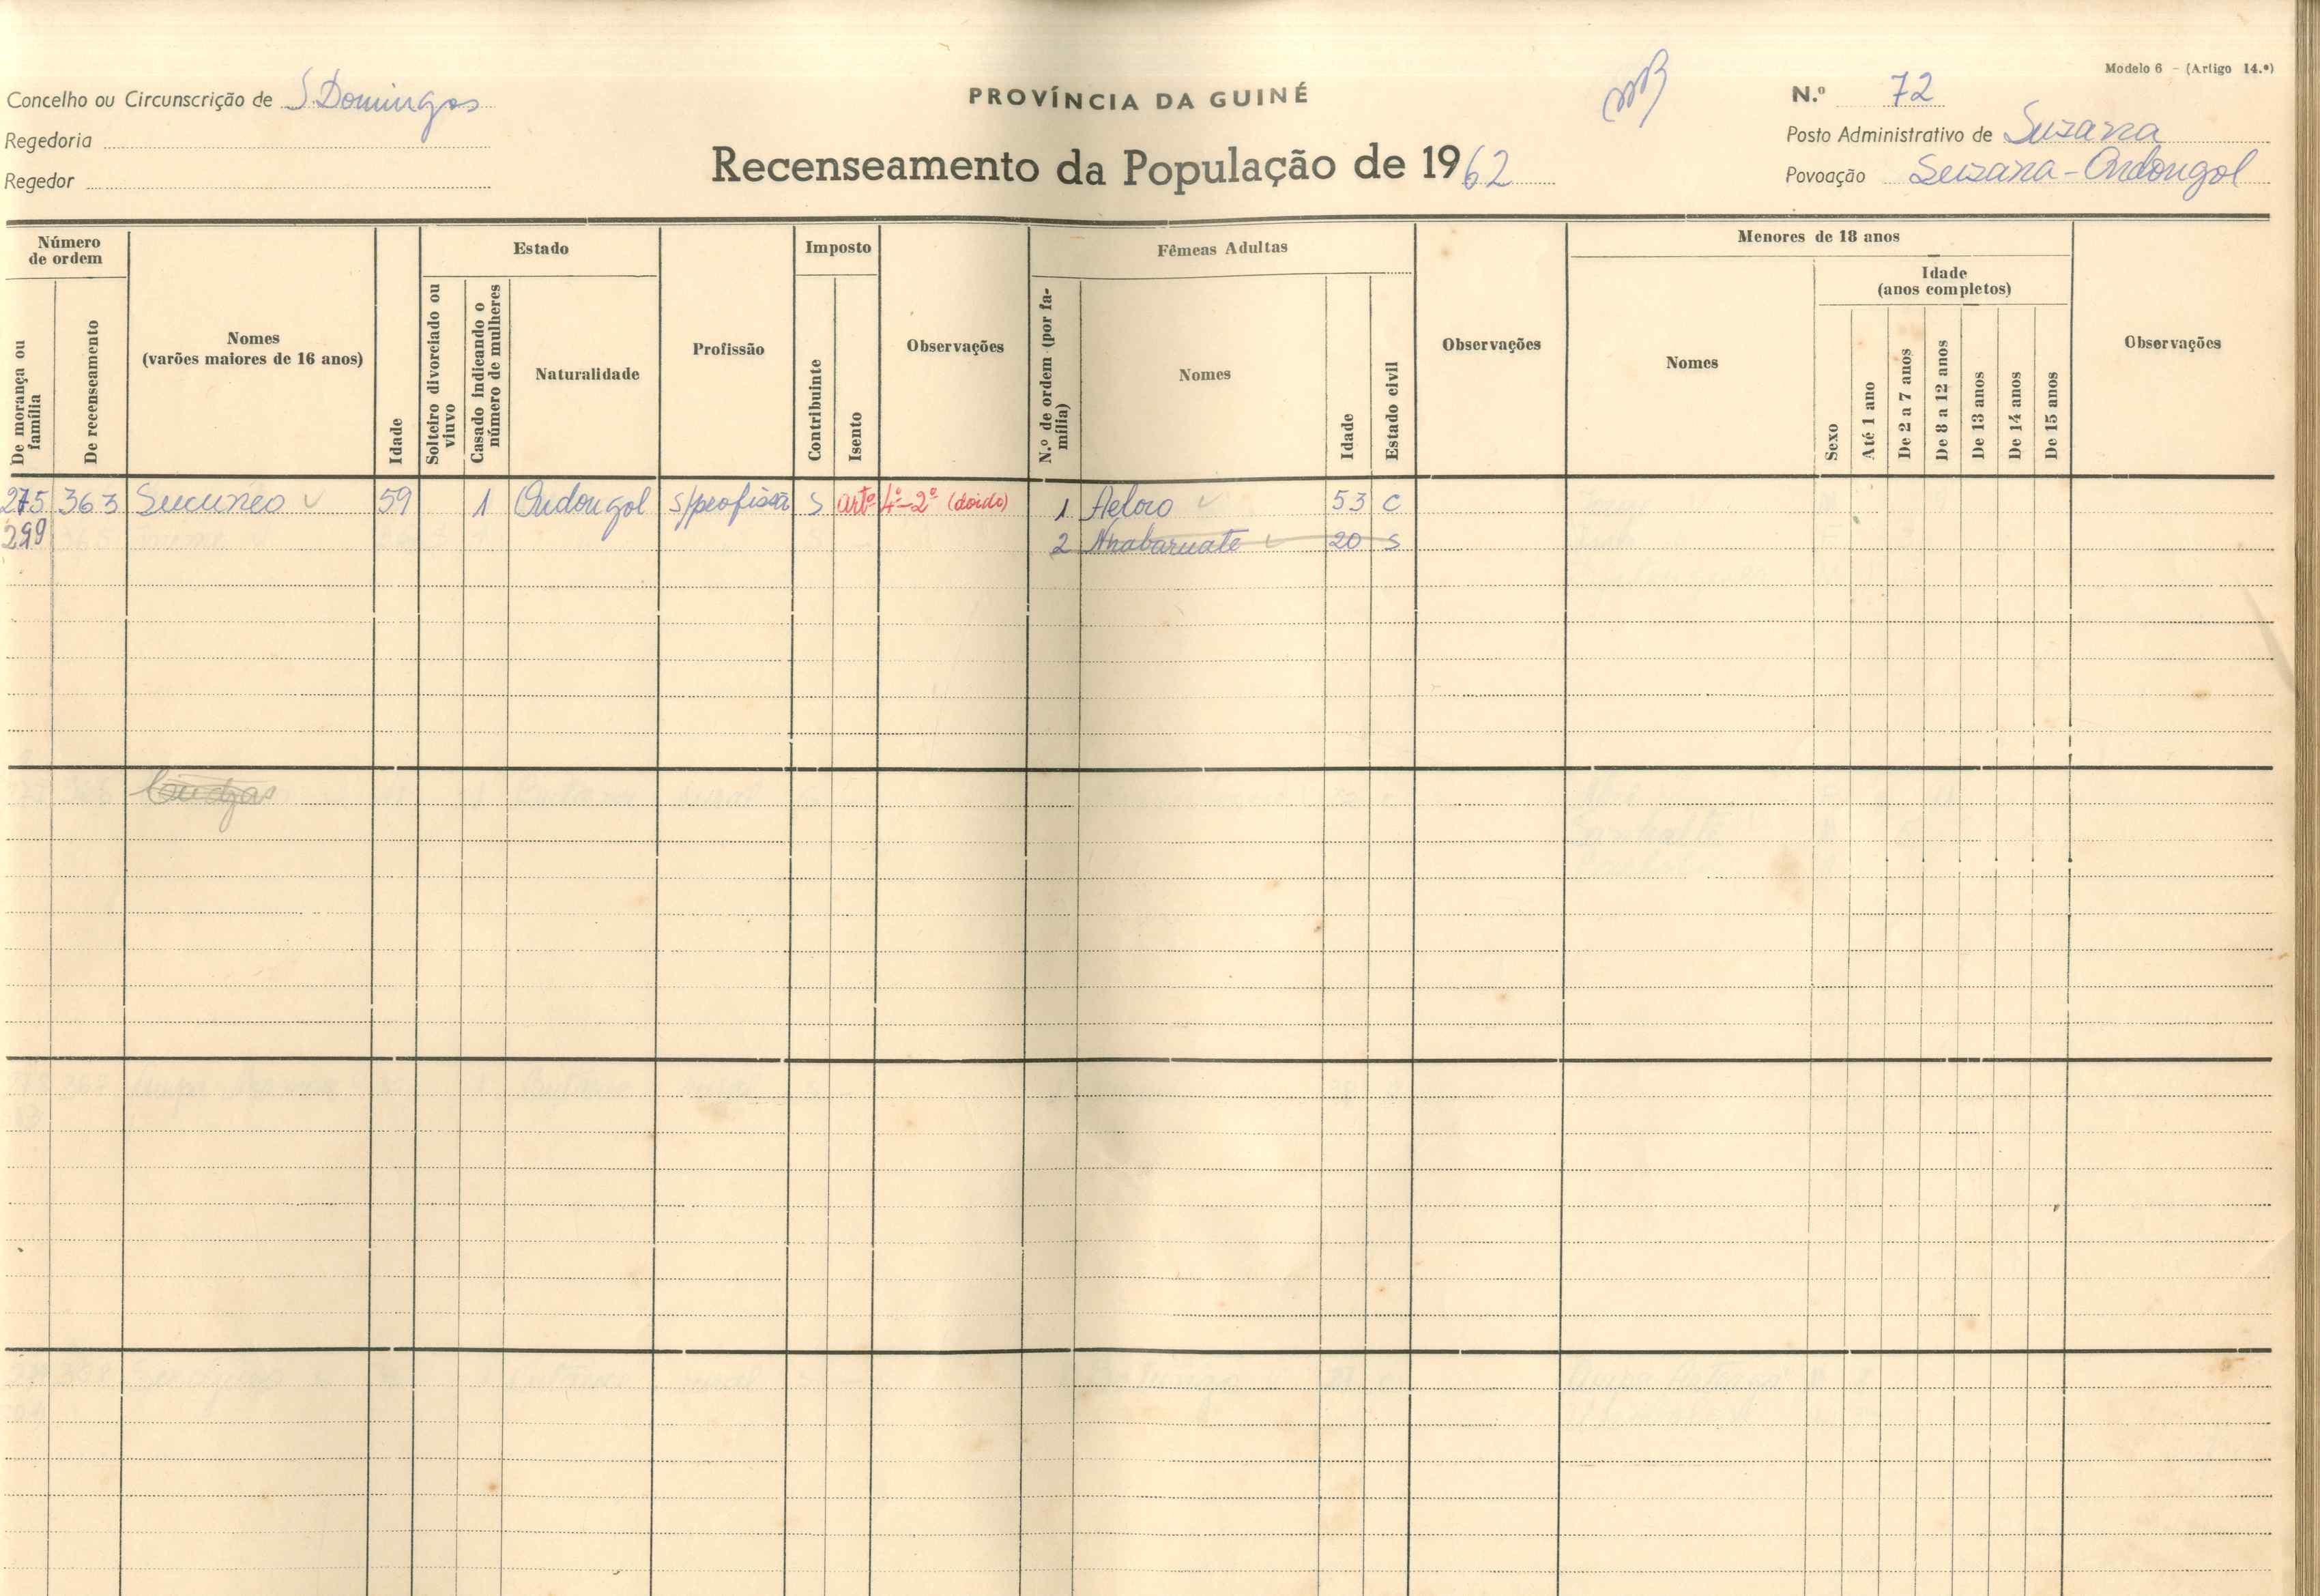 Modelo 6 - (Artigo 14.º)
Concelho ou Circunscrição de S. Domingos
PROVÍNCIA DA GUINÉ
N.º 72
Regedoria
Posto Administrativo de Suzana
Regedor
Recenseamento da População de 1962
Povoação Suzana - Ondongol
Número de ordem
De morança ou família
De recenseamento
Nomes
(varões maiores de 16 anos)
Idade
Estado
Solteiro divorciado ou viuvo
Casado indicando o número de mulheres
Naturalidade
Profissão
Imposto
Contribuinte
Isento
Observações
Fêmeas Adultas
N.º de ordem (por família)
Nomes
Idade
Estado civil
Observações
Menores de 18 anos
Nomes
Idade
(anos completos)
Sexo
Até 1 ano
De 2 a 7 anos
De 8 a 12 anos
De 13 anos
De 14 anos
De 15 anos
Observações
275 363 Sucuneo 59 1 Ondongol s/profissão S artº 4º-2º (doido) 1 Aeloro 53 C
299 2 Nhabaruate 20 S